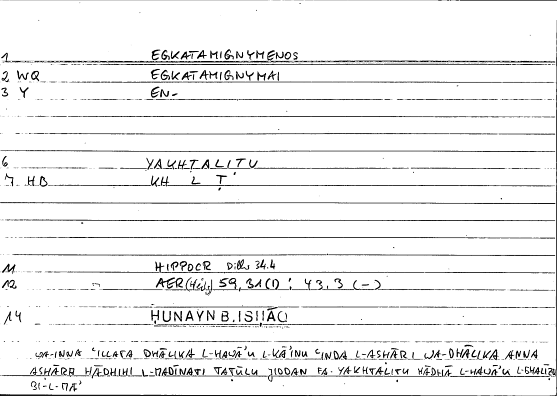 1 EGKATAMIGNYMENOS
2 WQ EGKATAMIGNYMAI
3 Y EN-
6 YAKHTALIṬU
7 HB KH L Ṭ
11 HIPPOCR Diller 34.4
12 AER (Heib) 59,31(1) : 43,3 (-)
14 ḤUNAYN B. ISḤĀQ
WA-INNA ʿILLATA DHĀLIKA L-HAWĀʾU L-KĀʾINU ʿINDA L-ASHĀRI WA-DHĀLIKA ANNA
ASHĀRA HĀDHIHI L-MADĪNATI TAṬŪLU JIDDAN FA-YAKHTALIṬU HĀDHĀ L-HAWĀʾU L-GHALĪẒU
BI-L-MĀʾ